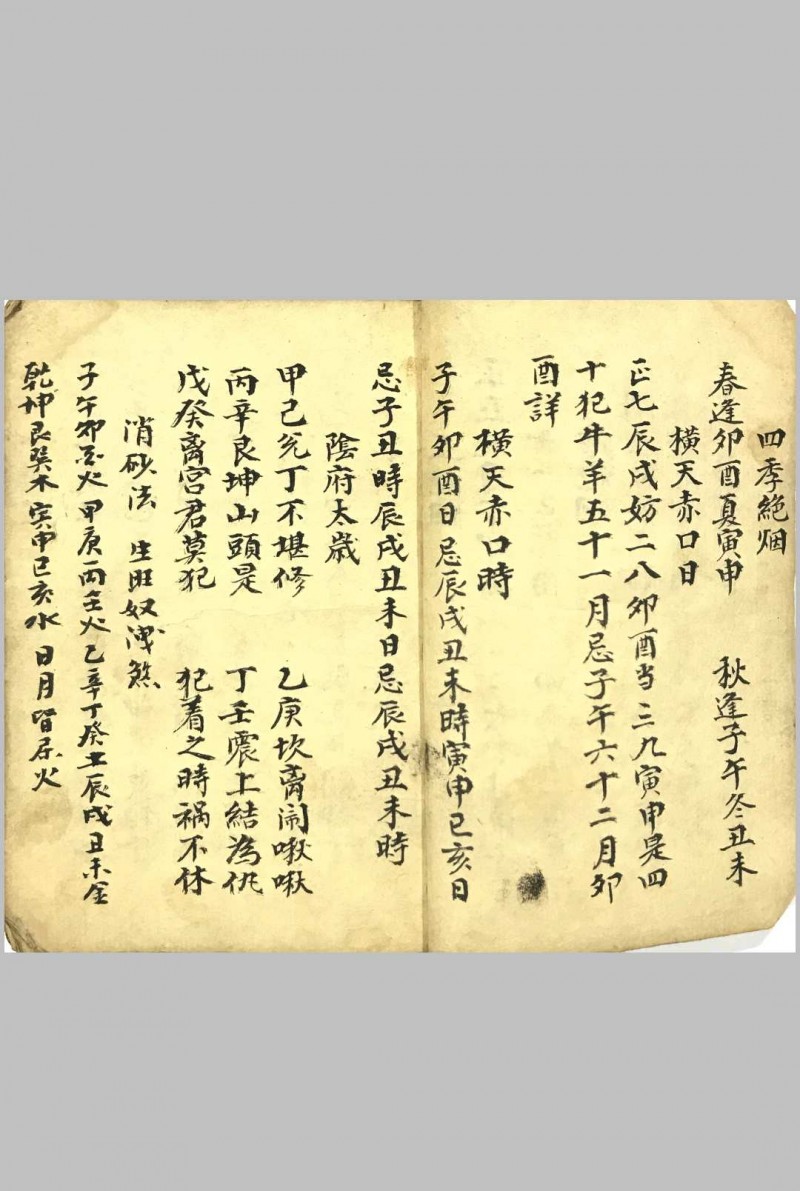 四季絶烟
春逢卯酉夏寅申 秋逢子午冬丑未
橫天赤口日
正七辰戌妨二八卯酉当三九寅申是四
十犯牛羊五十一月忌子午六十二月卯
酉詳
橫天赤口時
子午卯酉日忌辰戌丑未時寅申巳亥日
忌子丑時辰戌丑未日忌辰戌丑未時
陰府太歲
甲己兊丁不堪修 乙庚坎离闹啾啾
丙辛艮坤山頭是 丁壬震上結為仇
戊癸离宮君莫犯 犯着之時祸不休
消砂法 生旺奴洩煞
子午卯酉火甲庚丙壬火乙辛丁癸土辰戌丑未金
乾坤艮巽木寅申巳亥水 日月皆属火